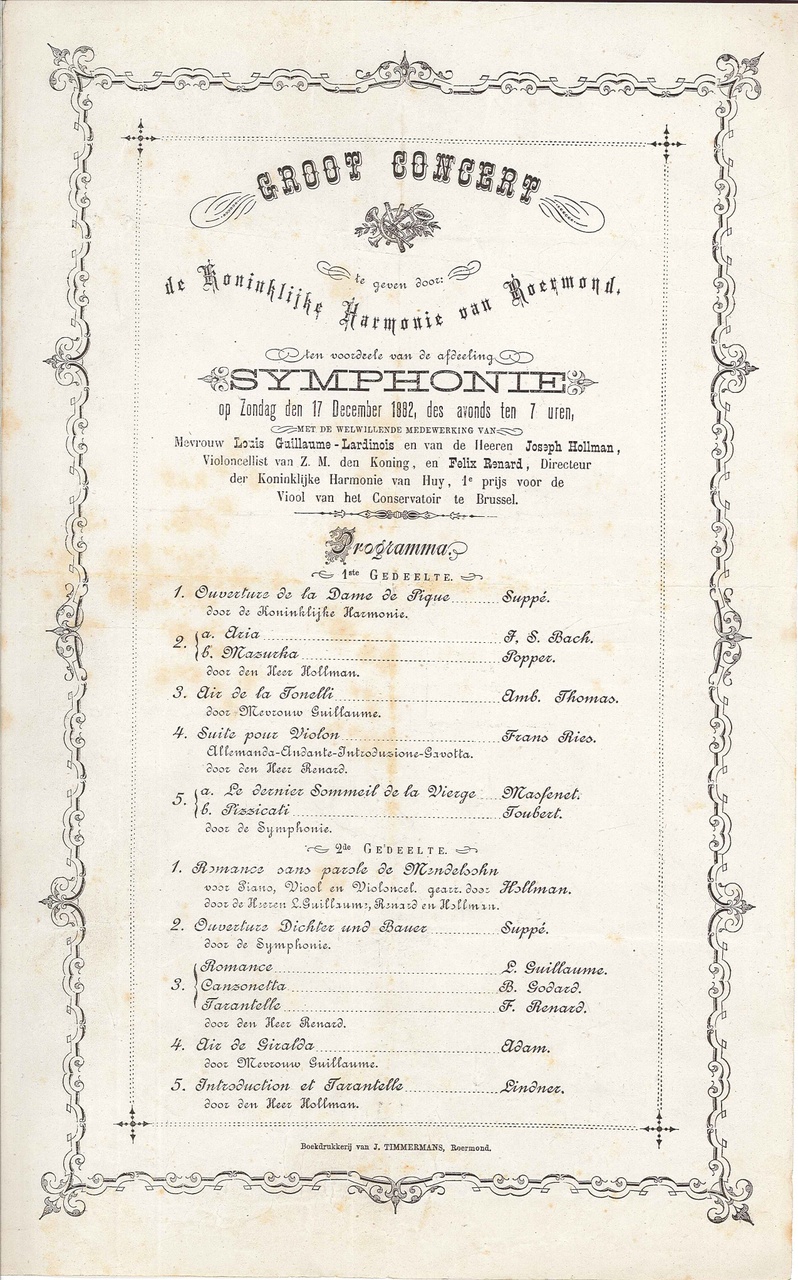 GROOT CONCERT
te geven door:
de Koninklijke Harmonie van Roermond.
ten voordeele van de afdeeling
SYMPHONIE
op Zondag den 17 December 1882, des avonds ten 7 uren,
MET DE WELWILLENDE MEDEWERKING VAN
Mevrouw Louis Guillaume-Lardinois en van de Heeren Joseph Hollman,
Violoncellist van Z. M. den Koning, en Felix Renard, Directeur
der Koninklijke Harmonie van Huy, 1e prijs voor de
Viool van het Conservatoir te Brussel.
Programma.
1ste GEDEELTE.
1. Ouverture de la Dame de Pique Suppé.
door de Koninklijke Harmonie.
2. a. Aria J. S. Bach.
b. Mazurka Popper.
door den Heer Hollman.
3. Air de la Tonelli Amb. Thomas.
door Mevrouw Guillaume.
4. Suite pour Violon Frans Ries.
Allemanda-Andante-Introduzione-Gavotta.
door den Heer Renard.
5. a. Le dernier Sommeil de la Vierge Massenet.
b. Pizzicati Toubert.
door de Symphonie.
2de GEDEELTE.
1. Romance sans parole de Mendelsohn
voor Piano, Viool en Violoncel. gearr. door Hollman.
door de Heeren L. Guillaume, Renard en Hollman.
2. Ouverture Dichter und Bauer Suppé.
door de Symphonie.
3. Romance L. Guillaume.
Canzonetta B. Godard.
Tarantelle F. Renard.
door den Heer Renard.
4. Air de Giralda Adam.
door Mevrouw Guillaume.
5. Introduction et Tarantelle Lindner.
door den Heer Hollman.
Boekdrukkerij van J. TIMMERMANS, Roermond.